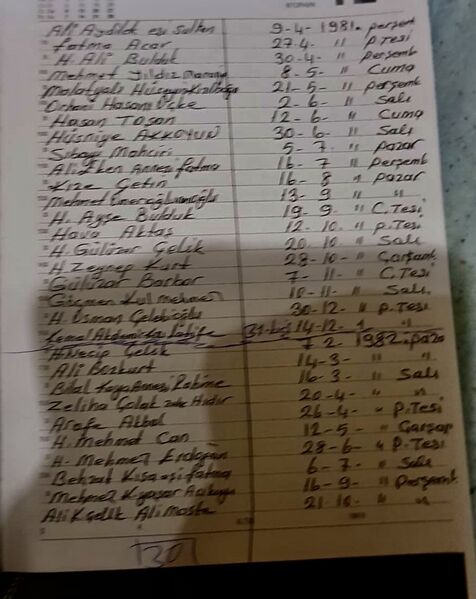 Ali Aydilek esi sultan 9-4-1981. perşem
Fatma Acar 27.4- " p.Tesi
H. Ali Bulduk 30-4- " perşemb
Mehmet Yıldız 8-5- " Cuma
Malatyalı Hüseyin 21-5- " perşemb
Orhan Hasan 2-6- " Salı
Hasan Tosan 12-6- " Cuma
Hüsniye AKKOYUN 30-6- " Salı
5-7- " pazar
Annesi fatma 16-7 " perşemb
Kize Çetin 16-8 " pazar
Mehmet 13-9 " "
H. Ayşe Bulduk 19-9- " C.Tesi
Hava Aktaş 12-10. " p.Tesi
H. Gülüzar Çelik 20.10 " Salı
H Zeynep Kurt 28-10- " Çarşamb
Gülüzar 7-11- " C.Tesi
Göçmen Kul mehmet 10-11- " Salı
H. Osman Çelebioğlu 30-12- " p.Tesi
Kemal 14-12- " "
H Necip Çelik 7 2- 1982. paza
Ali Bozkurt 14-3- " "
Bilal Kaya Annesi Rabine 16-3- " Salı
Zeliha Çolak Hıdır 20-4- " "
Arefe Akbal 26-4- " p.Tesi
H. Mehmet Can 12-5- " Çarşap
H- Mehmet Erdoğan 28-6- " p.Tesi
Behzat Kısa esi fatma 6-7- " Salı
Mehmet 16-9- " Perşemb
Ali Kçelik Ali 21-10- " "
130